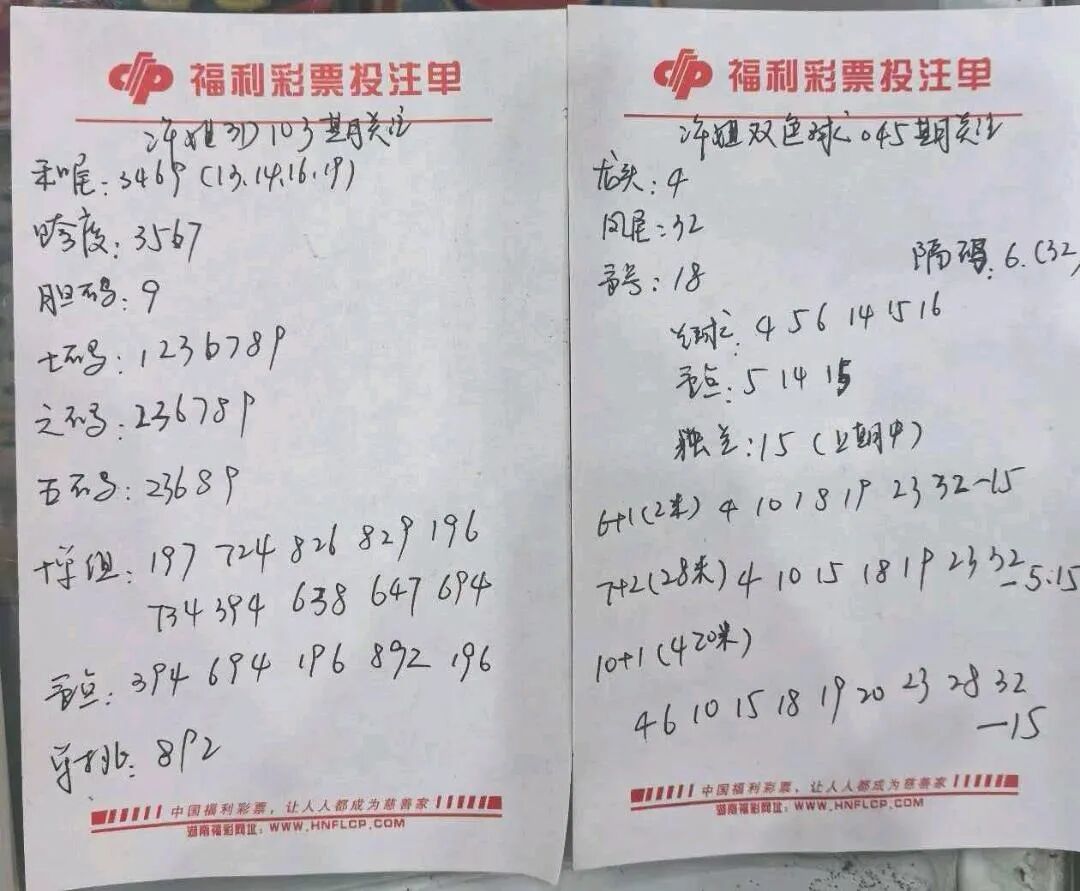 福利彩票投注单
3D 103期关注
和尾: 3469 (13.14.16.19)
跨度: 3567
胆码: 9
七码: 1236789
六码: 236789
五码: 23689
十单组: 197 724 826 829 196
734 394 638 647 694
重点: 394 694 196 892 196
单挑: 892
中国福利彩票,让人人都成为慈善家
湖南福彩网址:WWW.HNFLCP.COM
福利彩票投注单
双色球045期关注
龙头: 4
凤尾: 32
重号: 18
隔码: 6. (32)
兰球: 4 5 6 14 15 16
重点: 5 14 15
独兰: 15 (上期中)
6+1(2米) 4 10 18 19 23 32-15
7+2(28米) 4 10 15 18 19 23 32
-5.15
10+1(420米)
4 6 10 15 18 19 20 23 28 32
-15
中国福利彩票,让人人都成为慈善家
湖南福彩网址:WWW.HNFLCP.COM